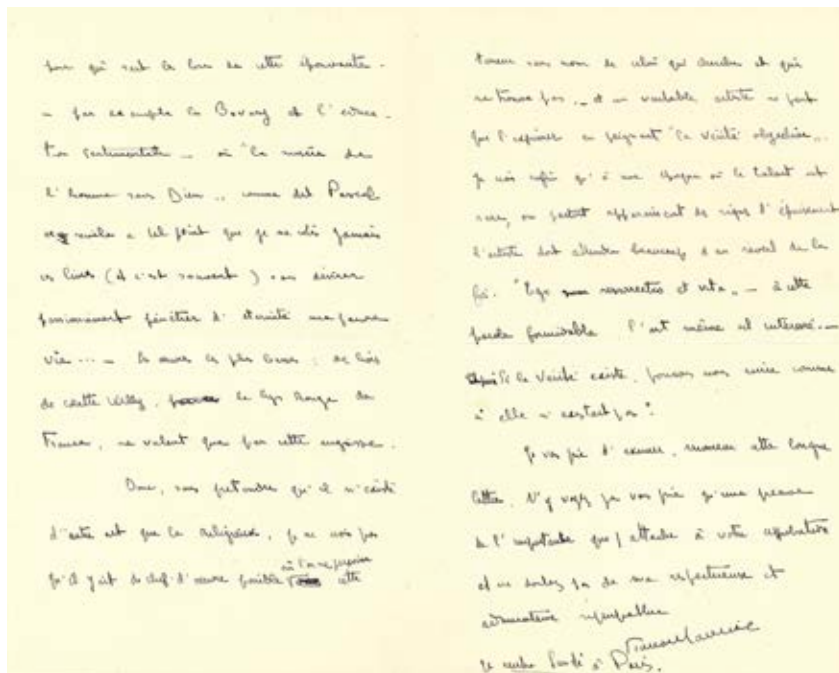 pour qui sent le long de cette épouvante –
– par exemple la Bovary et l'éduca-
tion sentimentale – où "la misère de
l'homme sans Dieu", comme dit Pascal
se révèle à tel point que je ne lis jamais
ces livres (et c'est souvent) sans désirer
passionnément pénétrer d'éternité ma pauvre
vie... – les œuvres les plus
de Colette Willy, le Lys Rouge de
France, ne valent que par cette angoisse.
Donc, sans prétendre qu'il n'existe
d'autre art que le religieux, je ne vois pas
qu'il y ait de chef-d'œuvre possible où l'on ne perçoive cette
sans nom de celui qui cherche et qui
ne trouve pas, – et un véritable artiste ne peut
que l'exprimer en peignant "la vérité objective".
Je crois enfin qu'à une époque où le talent est
rare, où partout apparaissent des signes d'épuisement
l'artiste doit attendre beaucoup d'un réveil de la
foi. "Ego sum resurrectio et vita" – à cette
parole formidable l'art même est intéressé –
Si la Vérité existe, pouvons nous vivre comme
si elle n'existait pas?
Je vous prie d'excuser, monsieur cette longue
lettre. N'y voyez je vous prie qu'une preuve
de l'importance que j'attache à votre approbation
et ne doutez pas de ma respectueuse et
admirative sympathie
François Mauriac
Je rentre lundi à Paris.